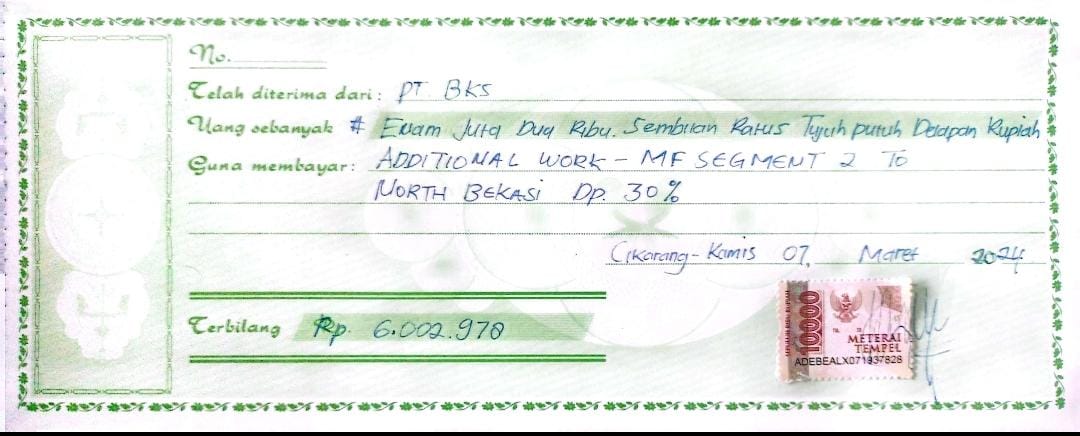 No.
Telah diterima dari: PT. BKS
Uang sebanyak # Enam Juta Dua Ribu. Sembilan Ratus Tujuh puluh Delapan Rupiah
Guna membayar: ADDITIONAL WORK - MF SEGMENT 2 TO
NORTH BEKASI Dp. 30%
Cikarang - Kamis 07, Maret 2024
Terbilang Rp. 6.002.978
10000
METERAI
TEMPEL
ADEBEALX071937828